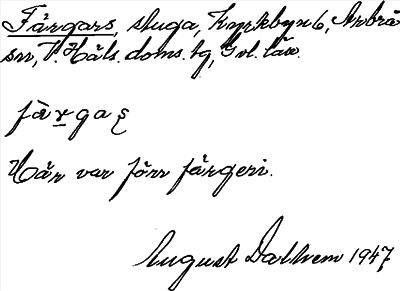 Färgars, stuga, Kyrkbyn 6, Arbrå
sn, V. Häls. doms. tg, Gvl. län.
färgaʂ
Här var förr färgeri.
August Dalhem 1947